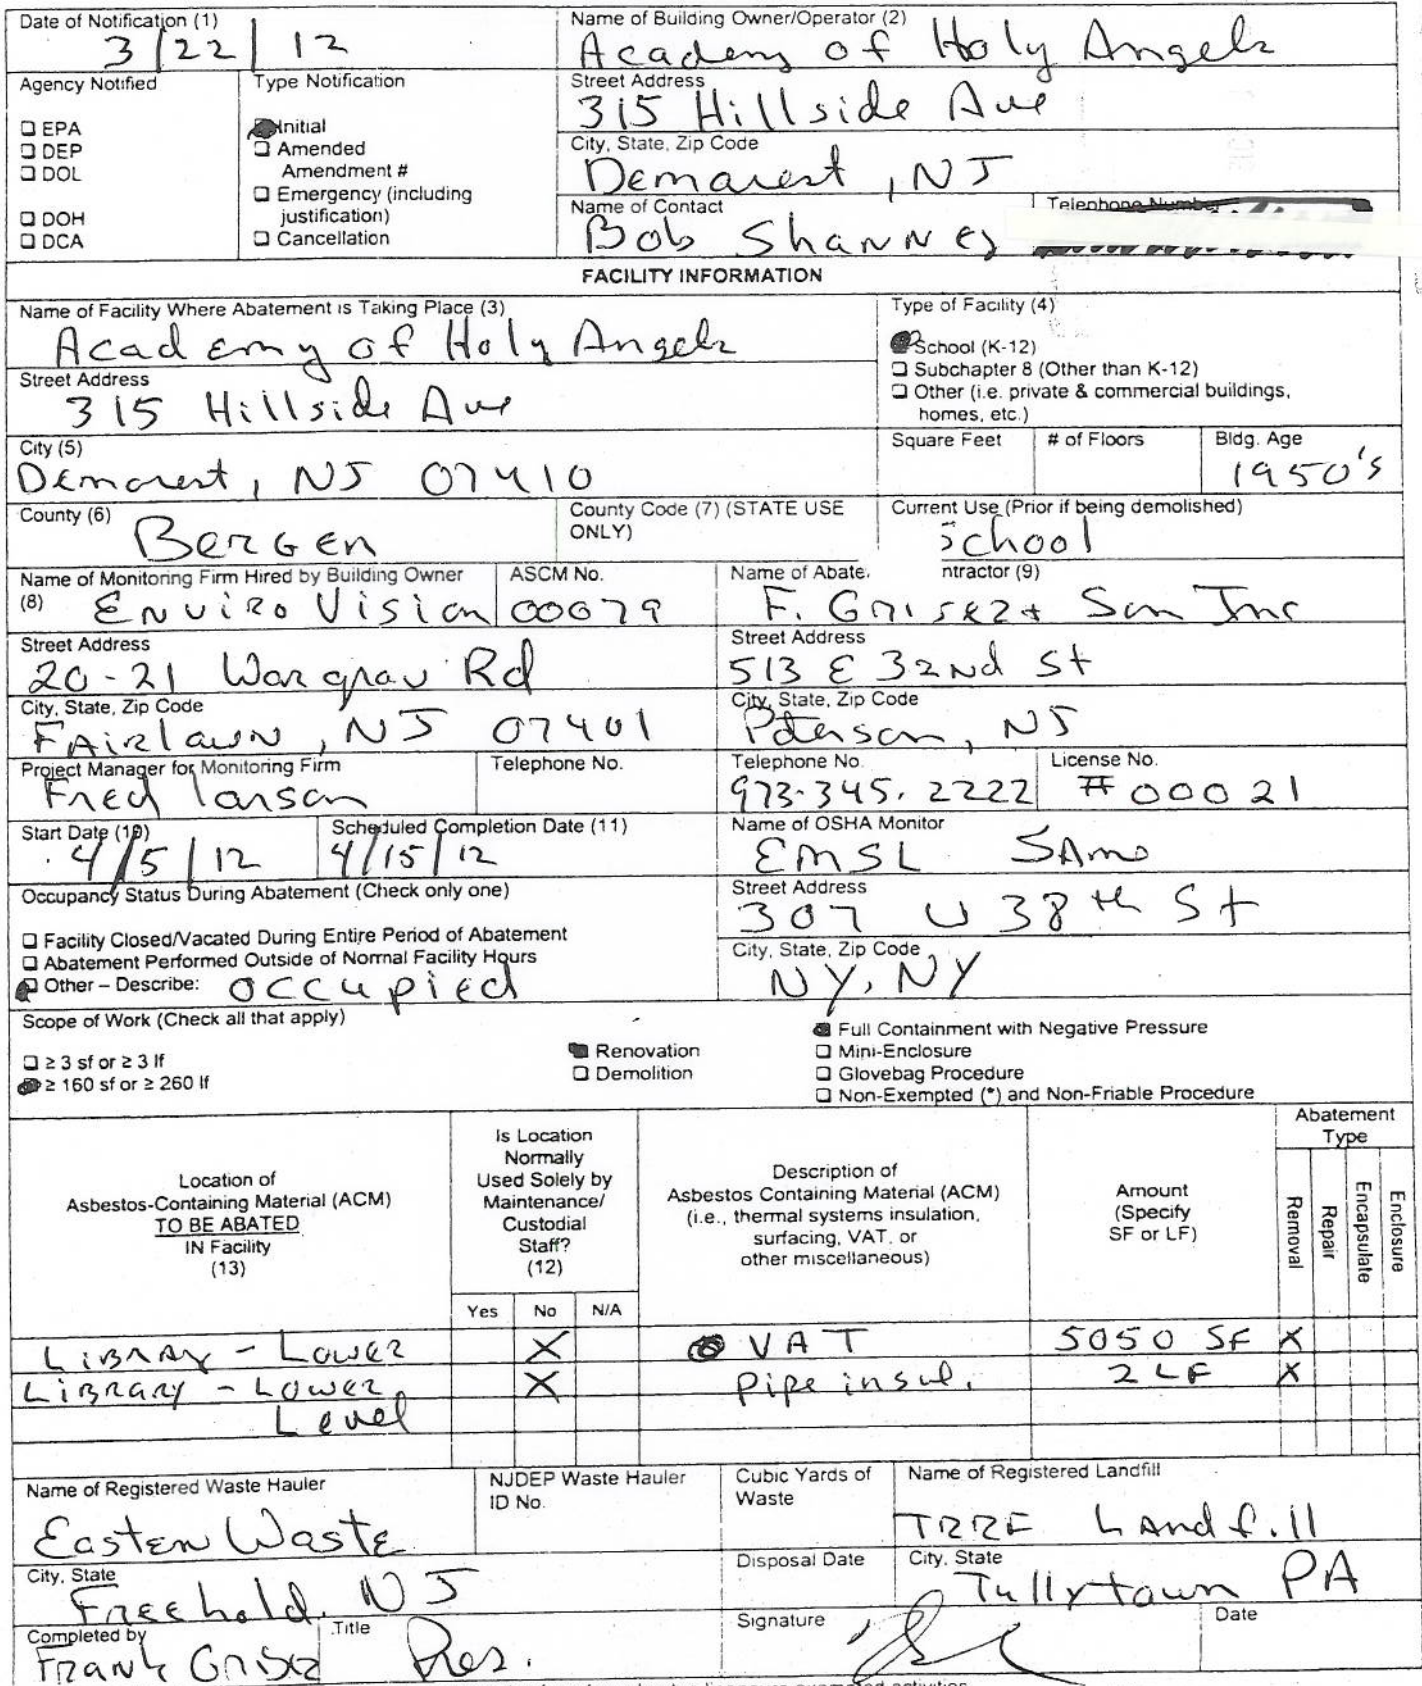 Date of Notification (1)
3/22/12
Name of Building Owner/Operator (2)
Academy of Holy Angels
Agency Notified
Type Notification
Street Address
315 Hillside Ave
EPA
DEP
DOL
DOH
DCA
Initial
Amended
Amendment #
Emergency (including
justification)
Cancellation
City, State, Zip Code
Demarest, NJ
Name of Contact
Bob Shannes
Telephone Number
FACILITY INFORMATION
Name of Facility Where Abatement is Taking Place (3)
Academy of Holy Angels
Type of Facility (4)
School (K-12)
Subchapter 8 (Other than K-12)
Other (i.e. private & commercial buildings,
homes, etc.)
Street Address
315 Hillside Ave
City (5)
Demarest, NJ 07410
Square Feet
# of Floors
Bldg. Age
1950's
County (6)
Bergen
County Code (7) (STATE USE
ONLY)
Current Use (Prior if being demolished)
School
Name of Monitoring Firm Hired by Building Owner
(8) Enviro Vision
ASCM No.
00079
Name of Abate. ntractor (9)
F. Griser + Son Inc
Street Address
20-21 Wargrav Rd
Street Address
513 E 32nd St
City, State, Zip Code
Fairlawn, NJ 07401
City, State, Zip Code
Paterson, NJ
Project Manager for Monitoring Firm
Fred Larson
Telephone No.
Telephone No.
973-345.2222
License No.
#00021
Start Date (10)
4/5/12
Scheduled Completion Date (11)
4/15/12
Name of OSHA Monitor
EMSL
Occupancy Status During Abatement (Check only one)
Facility Closed/Vacated During Entire Period of Abatement
Abatement Performed Outside of Normal Facility Hours
Other – Describe: Occupied
Street Address
307 W 38th St
City, State, Zip Code
NY, NY
Scope of Work (Check all that apply)
≥ 3 sf or ≥ 3 lf
≥ 160 sf or ≥ 260 lf
Renovation
Demolition
Full Containment with Negative Pressure
Mini-Enclosure
Glovebag Procedure
Non-Exempted (*) and Non-Friable Procedure
Location of
Asbestos-Containing Material (ACM)
TO BE ABATED
IN Facility
(13)
Is Location
Normally
Used Solely by
Maintenance/
Custodial
Staff?
(12)
Yes No N/A
Description of
Asbestos Containing Material (ACM)
(i.e., thermal systems insulation,
surfacing, VAT, or
other miscellaneous)
Amount
(Specify
SF or LF)
Abatement
Type
Removal
Repair
Encapsulate
Enclosure
Library - Lower X VAT 5050 SF X
Library - Lower X Pipe insul. 2 LF X
Level
Name of Registered Waste Hauler
Eastern Waste
NJDEP Waste Hauler
ID No.
Cubic Yards of
Waste
Name of Registered Landfill
TRRF Landfill
City, State
Freehold, NJ
Disposal Date
City, State
Tullytown PA
Completed by
Frank Griser
Title
Pres.
Signature
Date